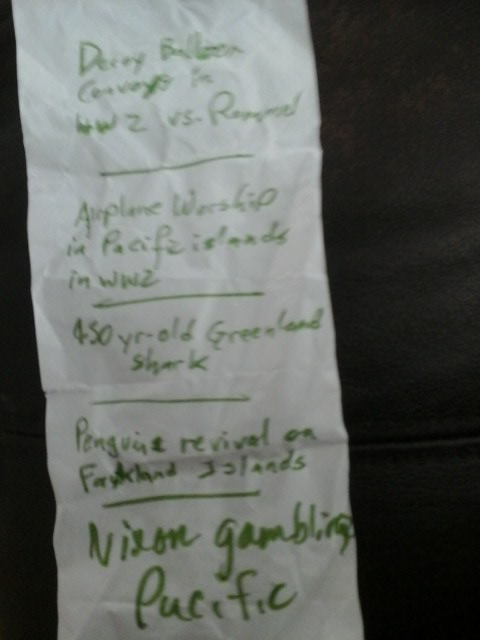 Decoy Balloon
Convoys in
WW2 vs. Rommel
Airplane Worship
in Pacific islands
in WW2
450 yr-old Greenland
shark
Penguine revival on
Falkland Islands
Nixon gambling
Pacific